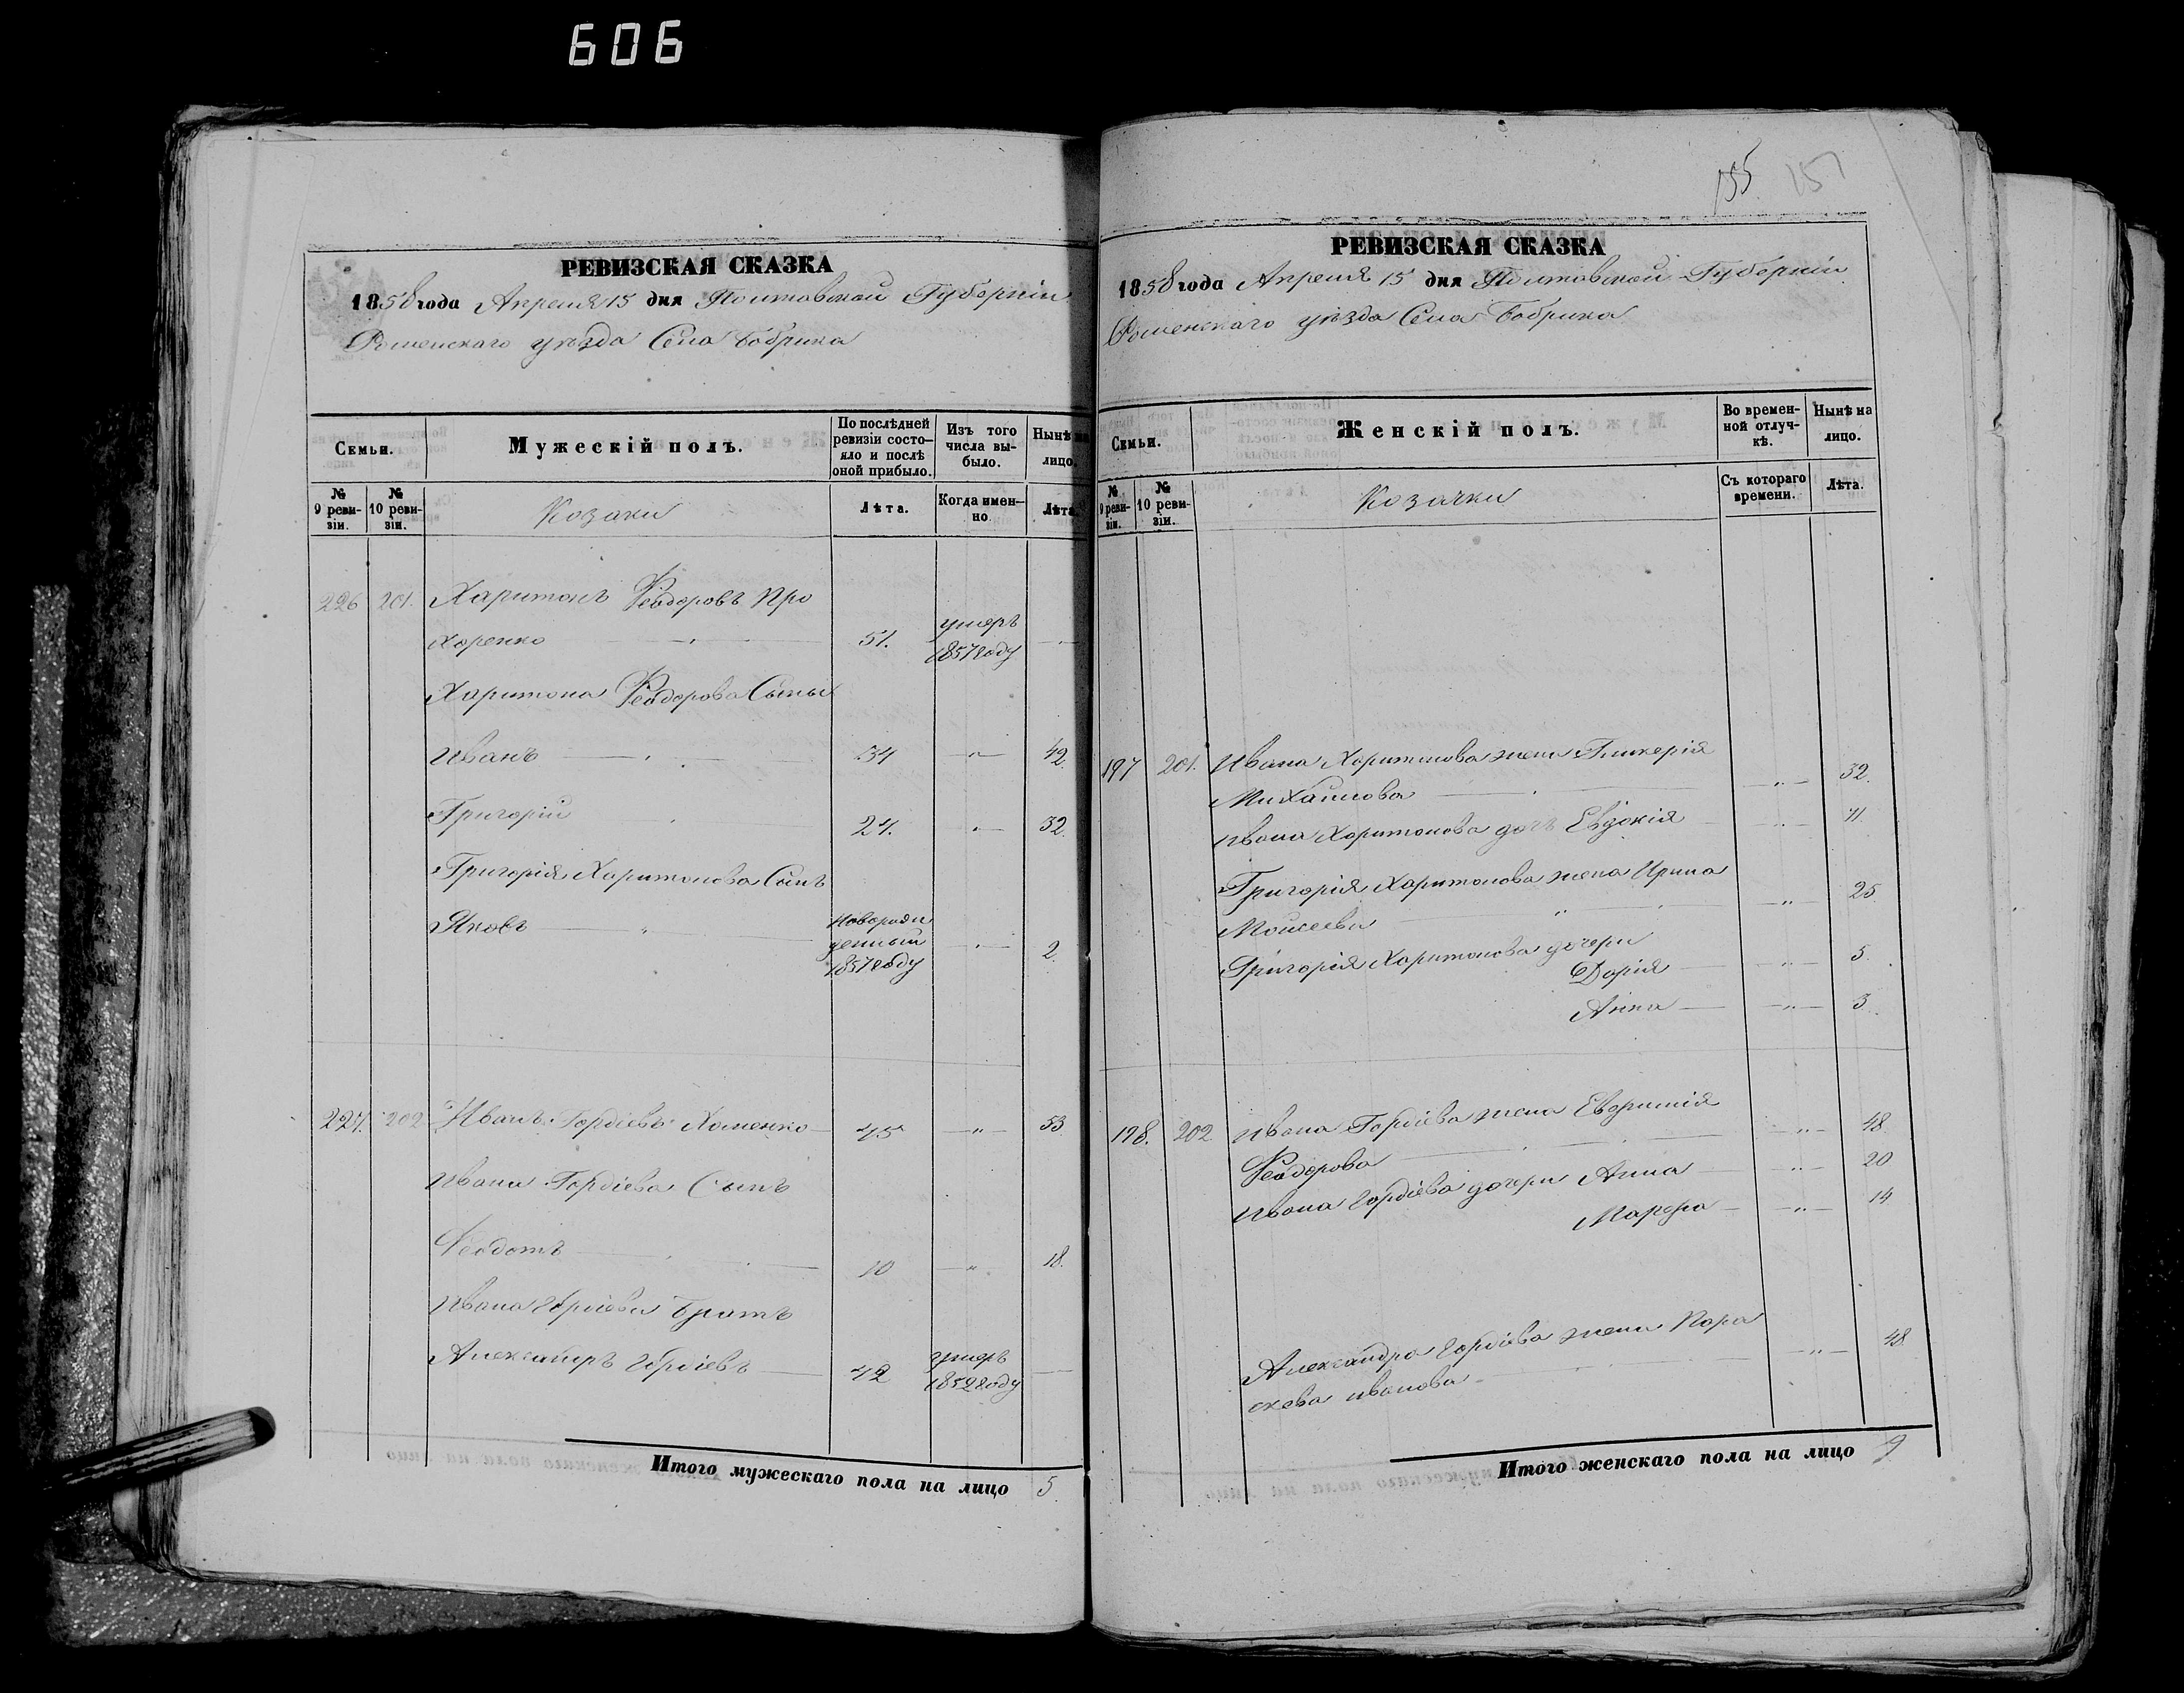 606
РЕВИЗСКАЯ СКАЗКА
1858 года Апреля 15 дня Полтавской Губерніи
Роменскаго уѣзда Села Бобрика
Семьи.
Мужескій полъ.
По послѣдней ревизіи состояло и послѣ оной прибыло.
Изъ того числа выбыло.
Нынѣ на лицо.
№ 9 ревизіи.
№ 10 ревизіи.
Козаки
Лѣта.
Когда именно.
Лѣта.
226 201. Харитонъ Феодоровъ Про
хоренко 51. умеръ 1857 году
Харитона Феодорова Сыны
Иванъ 34 42.
Григорій 24. 32.
Григорія Харитонова Сынъ
Яковъ новорожденный 1857 году 2.
227. 202 Иванъ Гордіевъ Хоменко 45 53.
Ивана Гордіева Сынъ
Феодотъ 10 18.
Ивана Гордіева Братъ
Александръ Гордіевъ 42 умеръ 1852 году
Итого мужескаго пола на лицо 5.
155. 157
РЕВИЗСКАЯ СКАЗКА
1858 года Апреля 15 дня Полтавской Губерніи
Роменскаго уѣзда Села Бобрика
Семьи.
Женскій полъ.
Во временной отлучкѣ.
Нынѣ на лицо.
№ 9 ревизіи.
№ 10 ревизіи.
Козачки
Съ котораго времени.
Лѣта.
197 201. Ивана Харитонова жена Гликерія
Михайлова 32.
Ивана Харитонова дочь Евдокія 11.
Григорія Харитонова жена Ирина
Моисеева 25.
Григорія Харитонова дочери
Дарія 5.
Анна 3.
198. 202 Ивана Гордіева жена Евфимія
Феодорова 48.
Ивана Гордіева дочери Анна 20
Марфа 14
Александра Гордіева жена Пара
скева Иванова 48.
Итого женскаго пола на лицо 9